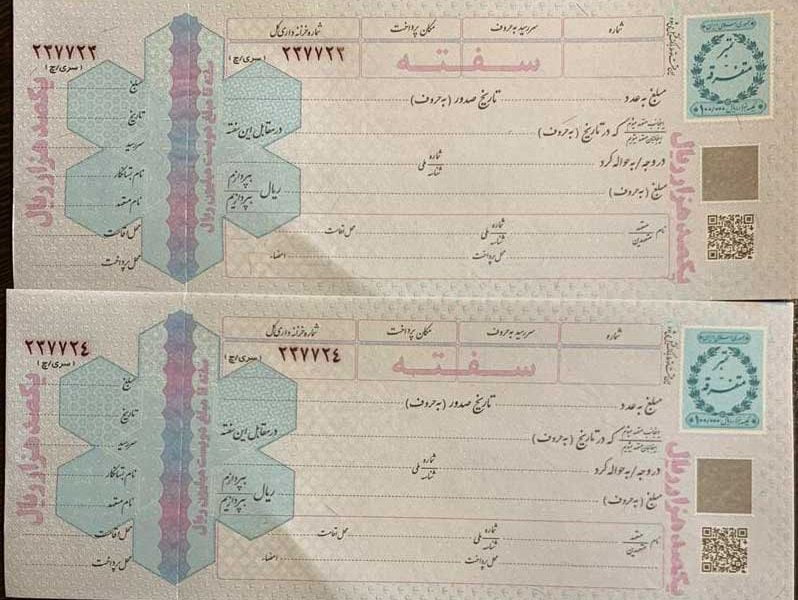 شماره
سررسید به حروف
مکان پرداخت
شماره خزانه داری کل
۲۳۷۷۲۳
سفته
(سری/چ)
۲۳۷۷۲۳
تمبر
متفرقه
مبلغ به عدد
تاریخ صدور (به حروف)
اینجانب متعهد میشوم
اینجانبان متعهد میشویم
که در تاریخ (به حروف)
در مقابل این سفته
در وجه / به حواله کرد
شماره ملی
شناسه
مبلغ (به حروف)
ریال
بپردازم
بپردازیم
نام
متعهد
متعهدین
شماره ملی
شناسه
محل اقامت
محل پرداخت
امضاء
یکصد هزار ریال
سفته تا مبلغ دویست میلیون ریال
(سری/چ)
۲۳۷۷۲۳
مبلغ
تاریخ
سررسید
نام بستانکار
نام متعهد
محل اقامت
محل پرداخت
یکصد هزار ریال
شماره
سررسید به حروف
مکان پرداخت
شماره خزانه داری کل
۲۳۷۷۲۴
سفته
(سری/چ)
۲۳۷۷۲۴
تمبر
متفرقه
مبلغ به عدد
تاریخ صدور (به حروف)
اینجانب متعهد میشوم
اینجانبان متعهد میشویم
که در تاریخ (به حروف)
در مقابل این سفته
در وجه / به حواله کرد
شماره ملی
شناسه
مبلغ (به حروف)
ریال
بپردازم
بپردازیم
نام
متعهد
متعهدین
شماره ملی
شناسه
محل اقامت
محل پرداخت
امضاء
یکصد هزار ریال
سفته تا مبلغ دویست میلیون ریال
مبلغ
تاریخ
سررسید
نام بستانکار
نام متعهد
محل اقامت
محل پرداخت
یکصد هزار ریال